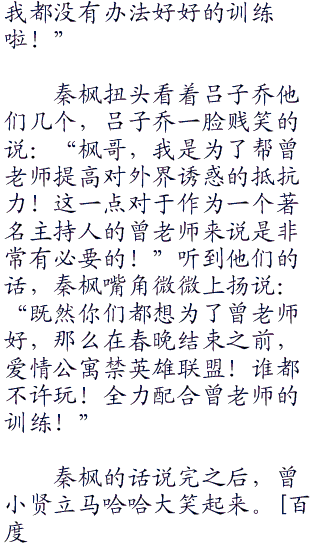 我都没有办法好好的训练
啦！”
秦枫扭头看着吕子乔他
们几个，吕子乔一脸贱笑的
说：“枫哥，我是为了帮曾
老师提高对外界诱惑的抵抗
力！这一点对于作为一个著
名主持人的曾老师来说是非
常有必要的！”听到他们的
话，秦枫嘴角微微上扬说：
“既然你们都想为了曾老师
好，那么在春晚结束之前，
爱情公寓禁英雄联盟！谁都
不许玩！全力配合曾老师的
训练！”
秦枫的话说完之后，曾
小贤立马哈哈大笑起来。[百
度